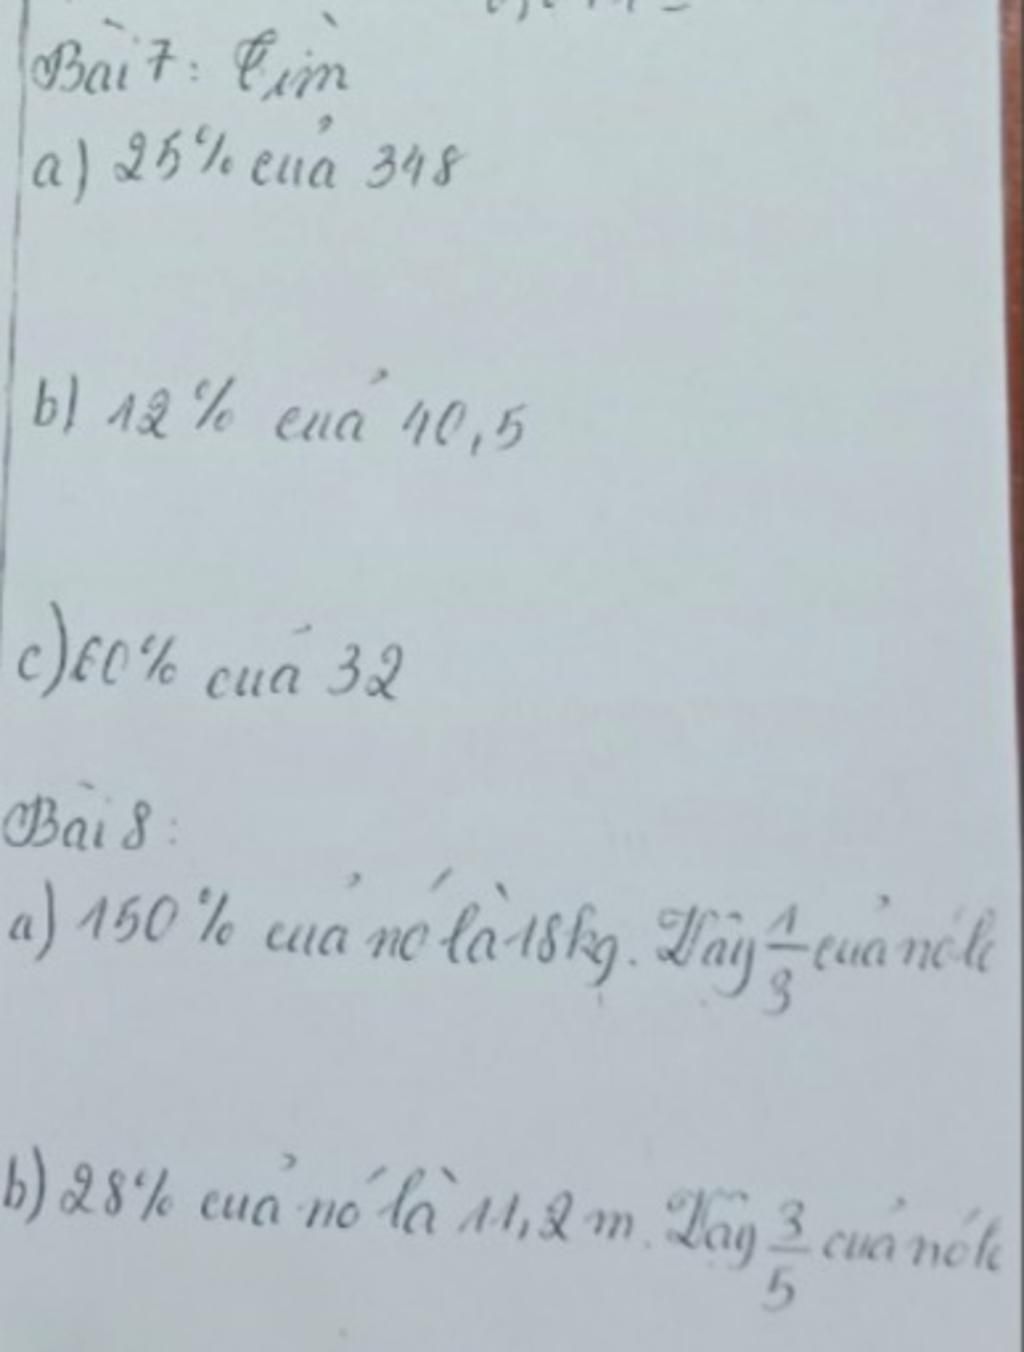 Bài 7: Tìm
a) 25% của 348
b) 12% của 40,5
c) 60% của 32
Bài 8:
a) 150% của nó là 18kg. Vậy 1/3 của nó là
b) 28% của nó là 11,2 m. Vậy 3/5 của nó là